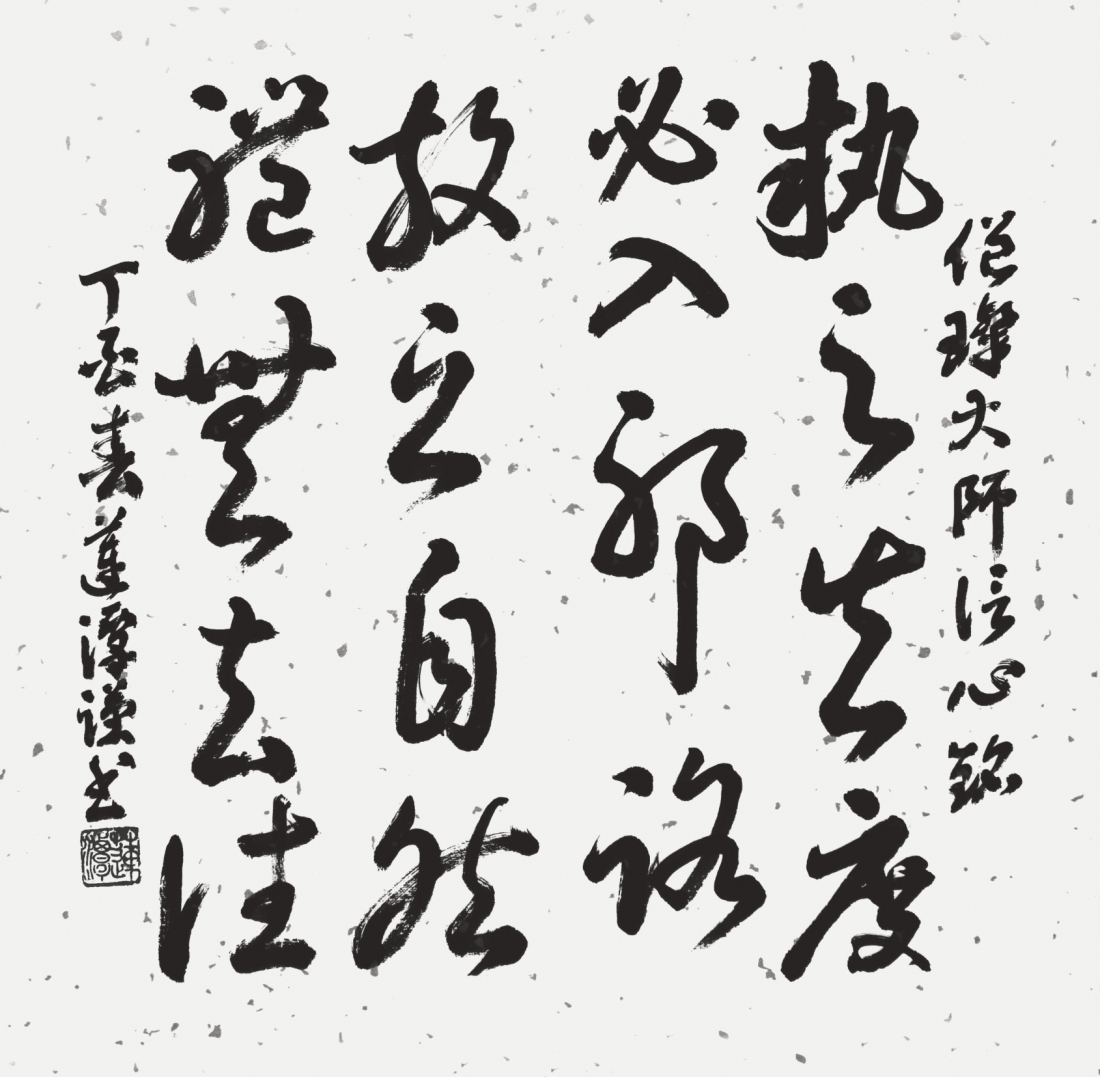 僧璨大師信心銘
執之失度
必入邪路
放之自然
體無去住
丁酉春蓮潭謹書
蓮潭